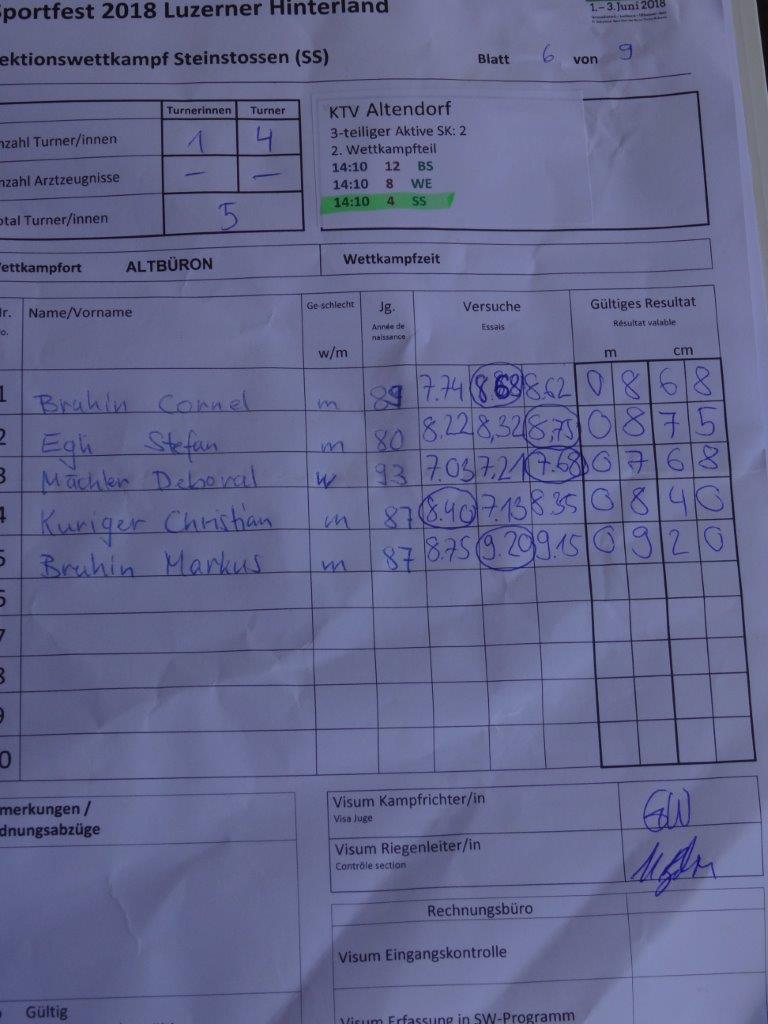 portfest 2018 Luzerner Hinterland
1. – 3. Juni 2018
ektionswettkampf Steinstossen (SS)
Blatt 6 von 9
Turnerinnen Turner
nzahl Turner/innen 1 4
nzahl Arztzeugnisse – –
otal Turner/innen 5
KTV Altendorf
3-teiliger Aktive SK: 2
2. Wettkampfteil
14:10 12 BS
14:10 8 WE
14:10 4 SS
ettkampfort ALTBÜRON Wettkampfzeit
r. Name/Vorname Ge-schlecht Jg. Versuche Gültiges Resultat
o. Année de naissance Essais Résultat valable
w/m m cm
1 Bruhin Cornel m 89 7.74 8.68 8.62 0 8 6 8
2 Egli Stefan m 80 8.22 8,32 8,75 0 8 7 5
3 Mächler Deboral w 93 7.03 7.21 7.68 0 7 6 8
4 Kuriger Christian m 87 8.40 7.13 8.35 0 8 4 0
5 Bruhin Markus m 87 8.75 9.20 9.15 0 9 2 0
6
7
8
9
0
merkungen /
dnungsabzüge
Visum Kampfrichter/in
Visa Juge
GW
Visum Riegenleiter/in
Contrôle section
Rechnungsbüro
Visum Eingangskontrolle
Visum Erfassung in SW-Programm
Gültig